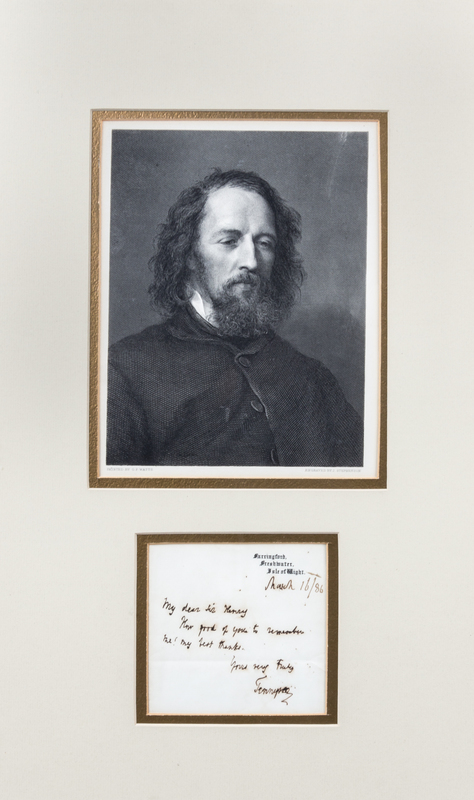 PAINTED BY G.F. WATTS
ENGRAVED BY
Farringford,
Freshwater,
Isle of Wight.
March 16/86
My dear Sir Henry
How good of you to remember
me! my best thanks.
Yours very truly
Tennyson